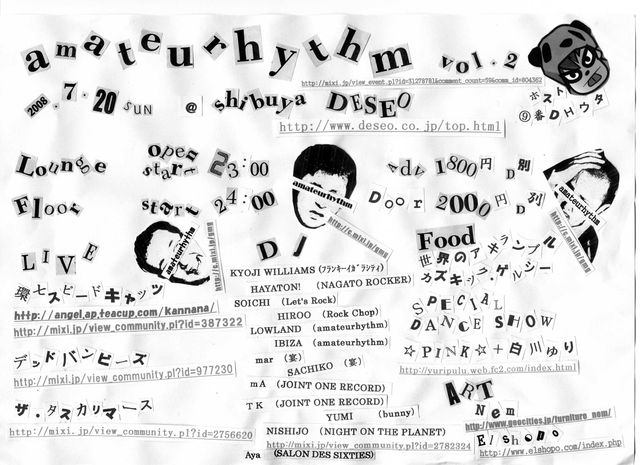 amateurhythm vol.2
http://mixi.jp/view_event.pl?id=31278781&comment_count=59&comm_id=804362
2008.7.20 SUN @ shibuya DESEO
http://www.deseo.co.jp/top.html
ホスト
⑨番DHウタ
Lounge open start 23:00 Adv 1800円 D別
Floor start 24:00 Door 2000円 D別
amateurhythm
amateurhythm
amateurhythm
http://c.mixi.jp/gmg
http://c.mixi.jp/gmg
http://c.mixi.jp/gmg
LIVE
環七スピードキャッツ
http://angel.ap.teacup.com/kannana/
http://mixi.jp/view_community.pl?id=387322
デッドバンビーズ
http://mixi.jp/view_community.pl?id=977230
ザ・タスカリマース
http://mixi.jp/view_community.pl?id=2756620
DJ
KYOJI WILLIAMS (フランキー・イガラシティ)
HAYATON! (NAGATO ROCKER)
SOICHI (Let's Rock)
HIROO (Rock Chop)
LOWLAND (amateurhythm)
IBIZA (amateurhythm)
mar (宴)
SACHIKO (宴)
mA (JOINT ONE RECORD)
TK (JOINT ONE RECORD)
YUMI (bunny)
NISHIJO (NIGHT ON THE PLANET)
http://mixi.jp/view_community.pl?id=2782324
Aya (SALON DES SIXTIES)
Food
世界のアキランブル
カズキック・ゲルシー
SPECIAL
DANCE SHOW
☆PINK☆+白川ゆり
http://yuripulu.web.fc2.com/index.html
ART
Nem
http://www.geocities.jp/furniture_nem/
Elshopo
http://www.elshopo.com/index.php